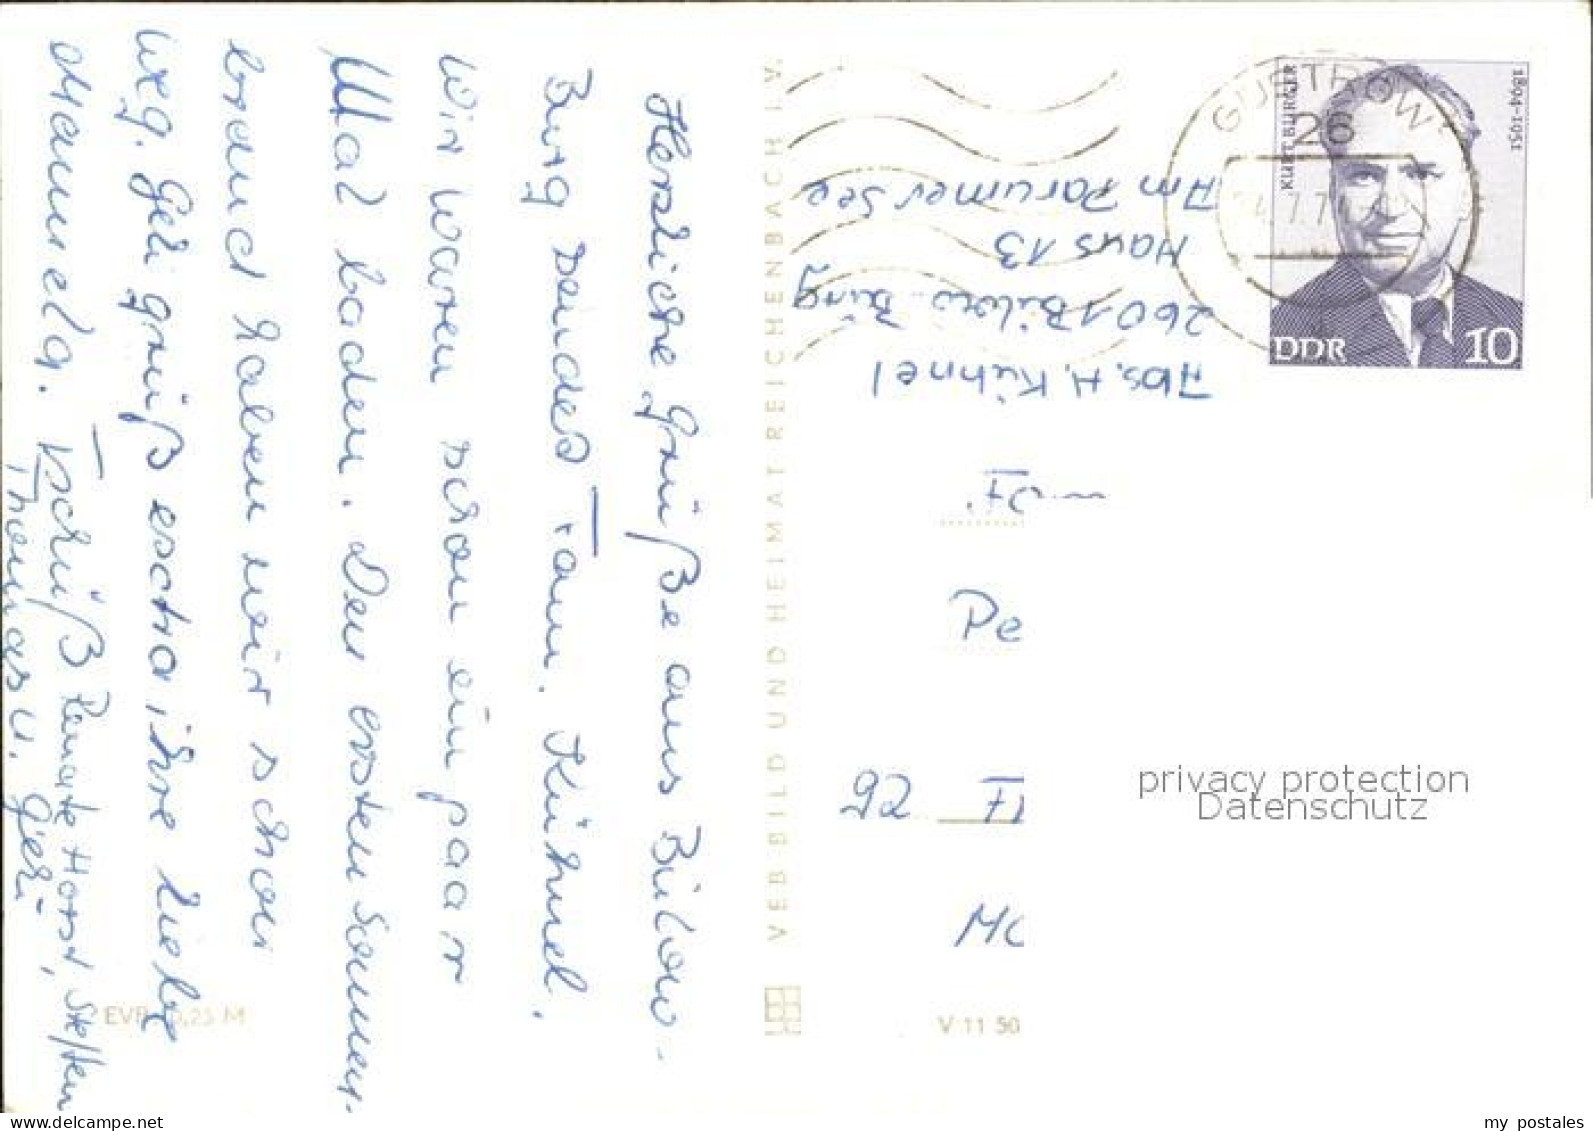 Herzliche Grüße aus Bülow-
Burg sendet Fam. Kühnel.
Wir waren schon ein paar
Mal baden. Den ersten Sonnen-
brand haben wir schon
weg. Geli grüß extra ihre liebe
Manuela. Tschüß Renate, Horst, Steffen
Thomas u. Geli
EVP 0,25 M
VEB BILD UND HEIMAT REICHENBACH I. V.
V 11 50
Abs. H. Kühnel
2601 Bülow-Burg
Haus 13
Am Parumer See
GÜSTROW 1
26
KURT BÜRGER
1894-1951
DDR
10
Pe
92
MC
privacy protection
Datenschutz
my postales